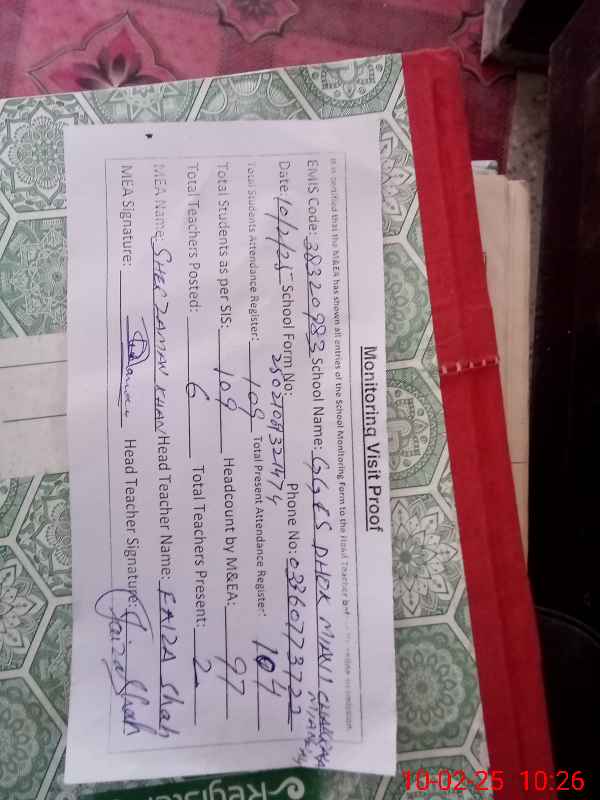 Monitoring Visit Proof
It is certified that the M&EA has shown all entries of the School Monitoring Form to the Head Teacher
EMIS Code: 38320983 School Name: GGES DHOK MIANI
Date: 10/2/25 School Form No: 2502109321474 Phone No: 03360773722
Total Students Attendance Register: 109 Total Present Attendance Register: 104
Total Students as per SIS: 109 Headcount by M&EA: 97
Total Teachers Posted: 6 Total Teachers Present: 2
MEA Name: SHER ZAMAN KHAN Head Teacher Name: FAIZA Shah
MEA Signature: Head Teacher Signature: Faiza Shah
Register
10-02-25 10:26